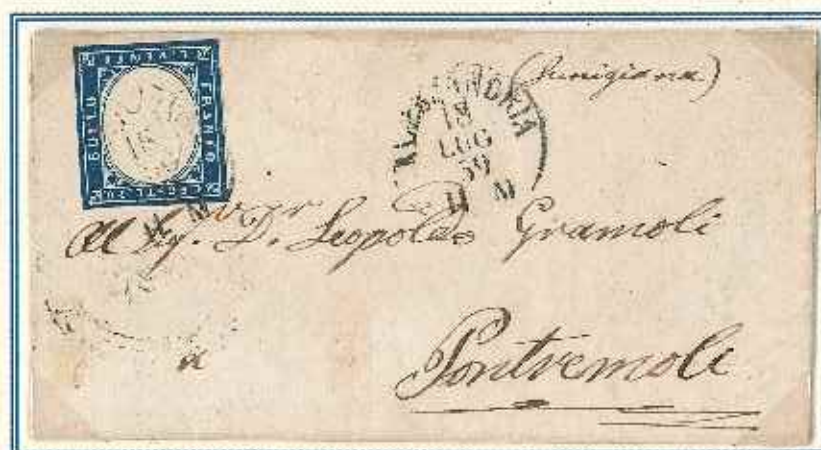 C. VENTI
FRANCO
BOLLO
C. POSTE. 20
(Lunigiana)
ALESSANDRIA
18
LUG
59
11 M
Al Sig. D. Leopoldo Gramoli
a
Pontremoli